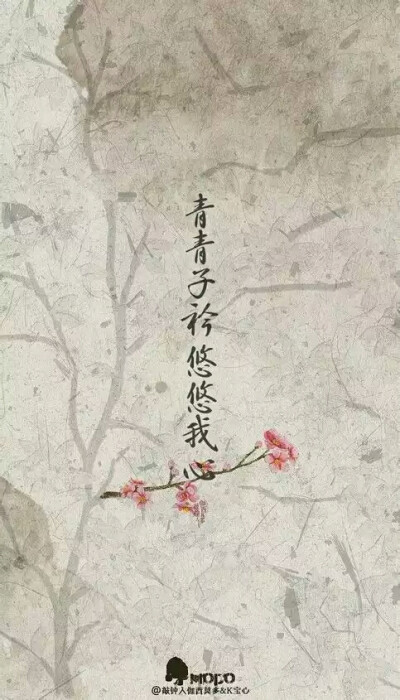 青青子衿悠悠我心
MOCO
@敲钟人伽西莫多&K宝心